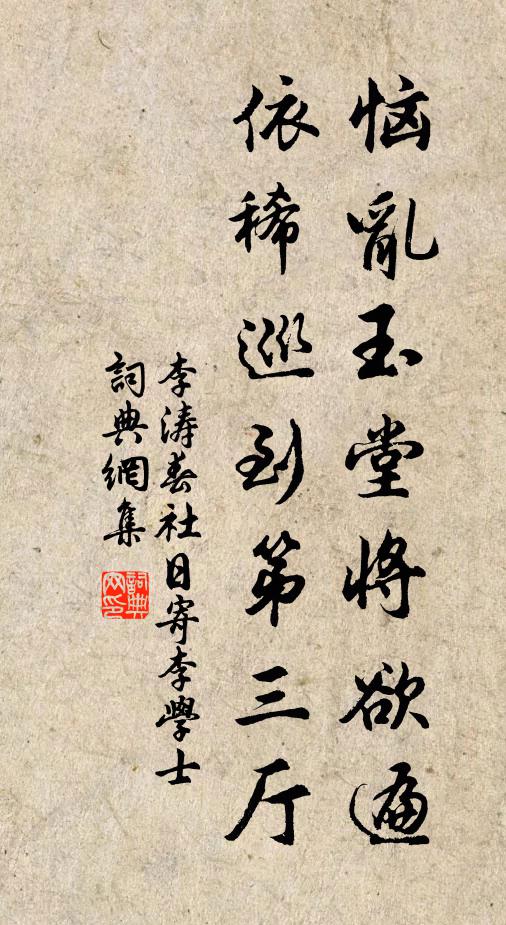 恼亂玉堂将欲遍
依稀巡到第三厅
李涛春社日寄李學士
詞典網集
詞典网印